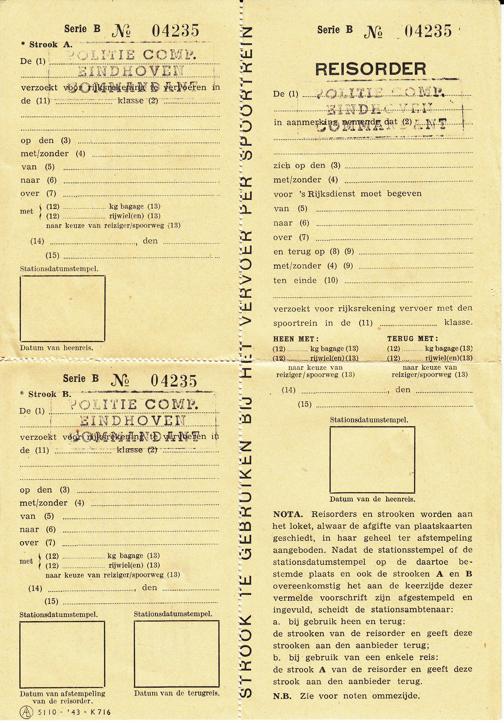 Serie B № 04235
* Strook A.
POLITIE COMP.
De (1)
EINDHOVEN
verzoekt voor rijksrekening te vervoeren in
COMMANDANT
de (11) klasse (2)
op den (3)
met/zonder (4)
van (5)
naar (6)
over (7)
met (12) kg bagage (13)
(12) rijwiel(en) (13)
naar keuze van reiziger/spoorweg (13)
(14) , den
(15)
Stationsdatumstempel.
Datum van heenreis.
Serie B № 04235
* Strook B.
POLITIE COMP.
De (1)
EINDHOVEN
verzoekt voor rijksrekening te vervoeren in
COMMANDANT
de (11) klasse (2)
op den (3)
met/zonder (4)
van (5)
naar (6)
over (7)
met (12) kg bagage (13)
(12) rijwiel(en) (13)
naar keuze van reiziger/spoorweg (13)
(14) , den
(15)
Stationsdatumstempel. Stationsdatumstempel.
Datum van afstempeling Datum van de terugreis.
van de reisorder.
5110 - '43 - K 716
STROOK TE GEBRUIKEN BIJ HET VERVOER PER SPOORTREIN
Serie B № 04235
REISORDER
De (1)
POLITIE COMP.
EINDHOVEN
in aanmerking nemende dat (2)
COMMANDANT
zich op den (3)
met/zonder (4)
voor 's Rijksdienst moet begeven
van (5)
naar (6)
over (7)
en terug op (8) (9)
met/zonder (4) (9)
ten einde (10)
verzoekt voor rijksrekening vervoer met den
spoortrein in de (11) klasse.
HEEN MET: TERUG MET:
(12) kg bagage (13) (12) kg bagage (13)
(12) rijwiel(en) (13) (12) rijwiel(en) (13)
naar keuze van naar keuze van
reiziger/spoorweg (13) reiziger/spoorweg (13)
(14) , den
(15)
Stationsdatumstempel.
Datum van de heenreis.
NOTA. Reisorders en strooken worden aan
het loket, alwaar de afgifte van plaatskaarten
geschiedt, in haar geheel ter afstempeling
aangeboden. Nadat de stationsstempel of de
stationsdatumstempel op de daartoe be-
stemde plaats en ook de strooken A en B
overeenkomstig het aan de keerzijde dezer
vermelde voorschrift zijn afgestempeld en
ingevuld, scheidt de stationsambtenaar:
a. bij gebruik heen en terug:
de strooken van de reisorder en geeft deze
strooken aan den aanbieder terug;
b. bij gebruik van een enkele reis:
de strook A van de reisorder en geeft deze
strook aan den aanbieder terug.
N.B. Zie voor noten ommezijde.